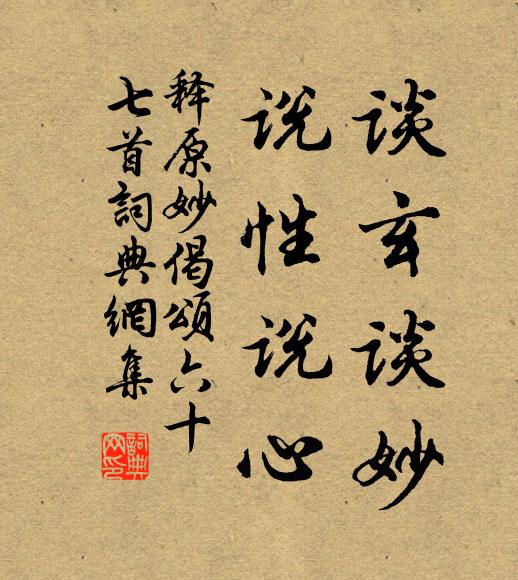 谈玄谈妙
说性说心
释原妙偈頌六十
七首詞典網集
詞典
网印